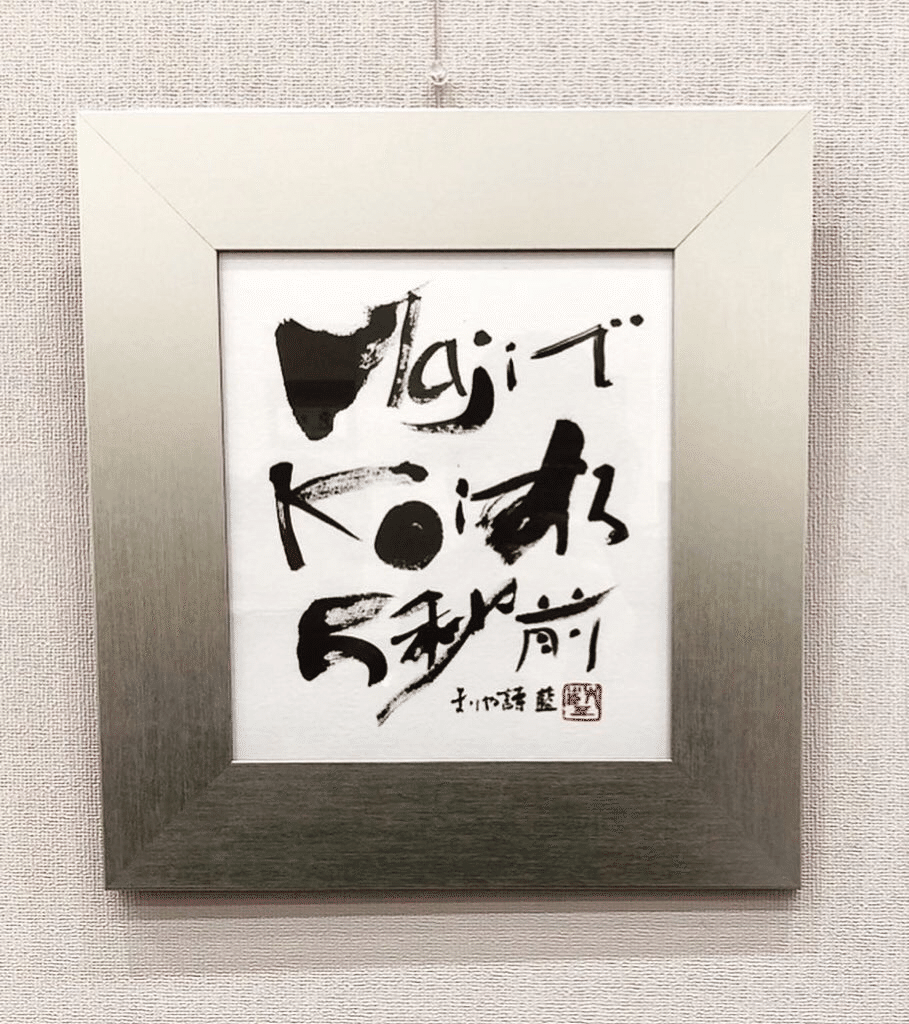 Majiで
Koiする
5秒前
まりや譚 藍